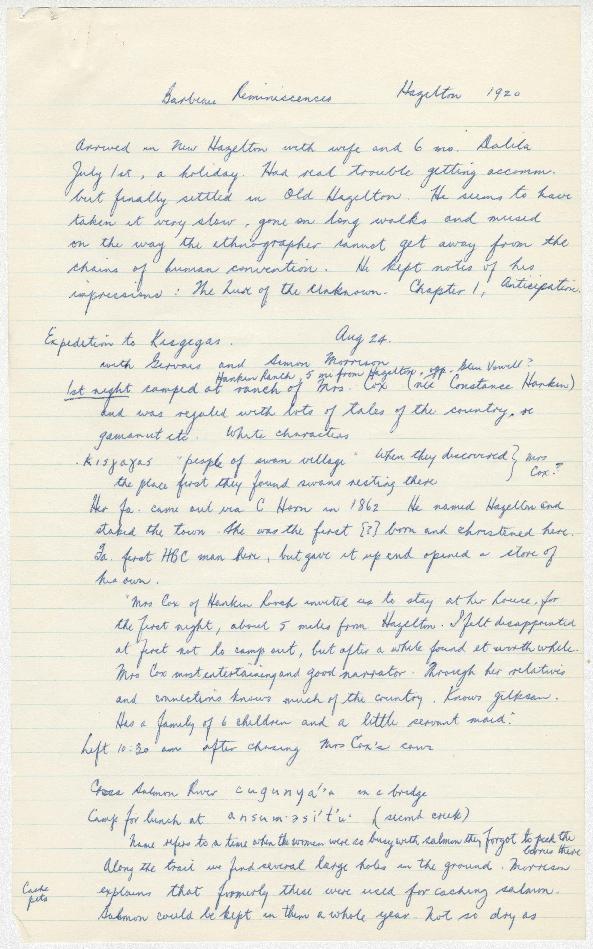 Barbeau Reminiscences Hazelton 1920
Arrived in New Hazelton with wife and 6 mo. Dalila
July 1st, a holiday. Had real trouble getting accomm.
but finally settled in Old Hazelton. He seems to have
taken it very slow, gone on long walks and mused
on the way the ethnographer cannot get away from the
chains of human convention. He kept notes of his
impressions: The Lure of the Unknown. Chapter 1, Anticipation.
Expedition to Kisgegas. Aug 24.
with Gervais and Simon Morrison
Hankin Ranch, 5 mi from Hazelton, opp. Glen Vowell?
1st night camped at ranch of Mrs. Cox (née Constance Hankin)
and was regaled with lots of tales of the country, re
gamanut etc. White characters
Kisgagas "people of swan village" When they discovered } Mrs
the place first they found swans nesting there Cox?
Her fa. came out via C Horn in 1862 He named Hazelton and
staked the town. She was the first [?] born and christened here.
Fa. first HBC man here, but gave it up and opened a store of
his own.
"Mrs Cox of Hankin Ranch invited us to stay at her house, for
the first night, about 5 miles from Hazelton. I felt disappointed
at first not to camp out, but after a while found it worth while.
Mrs Cox most entertaining and good narrator. Through her relatives
and connections knows much of the country. Knows Gitksan.
Has a family of 6 children and a little servant maid."
Left 10:30 am after chasing Mrs Cox's cows
Cross Salmon River on a bridge
Camp for lunch at (second creek)
Name refers to a time when the women were so busy with salmon they forgot to pick the
berries there
Along the trail we find several large holes in the ground. Morrison
Cache pits
explains that formerly these were used for caching salmon.
Salmon could be kept in them a whole year. Not so dry as